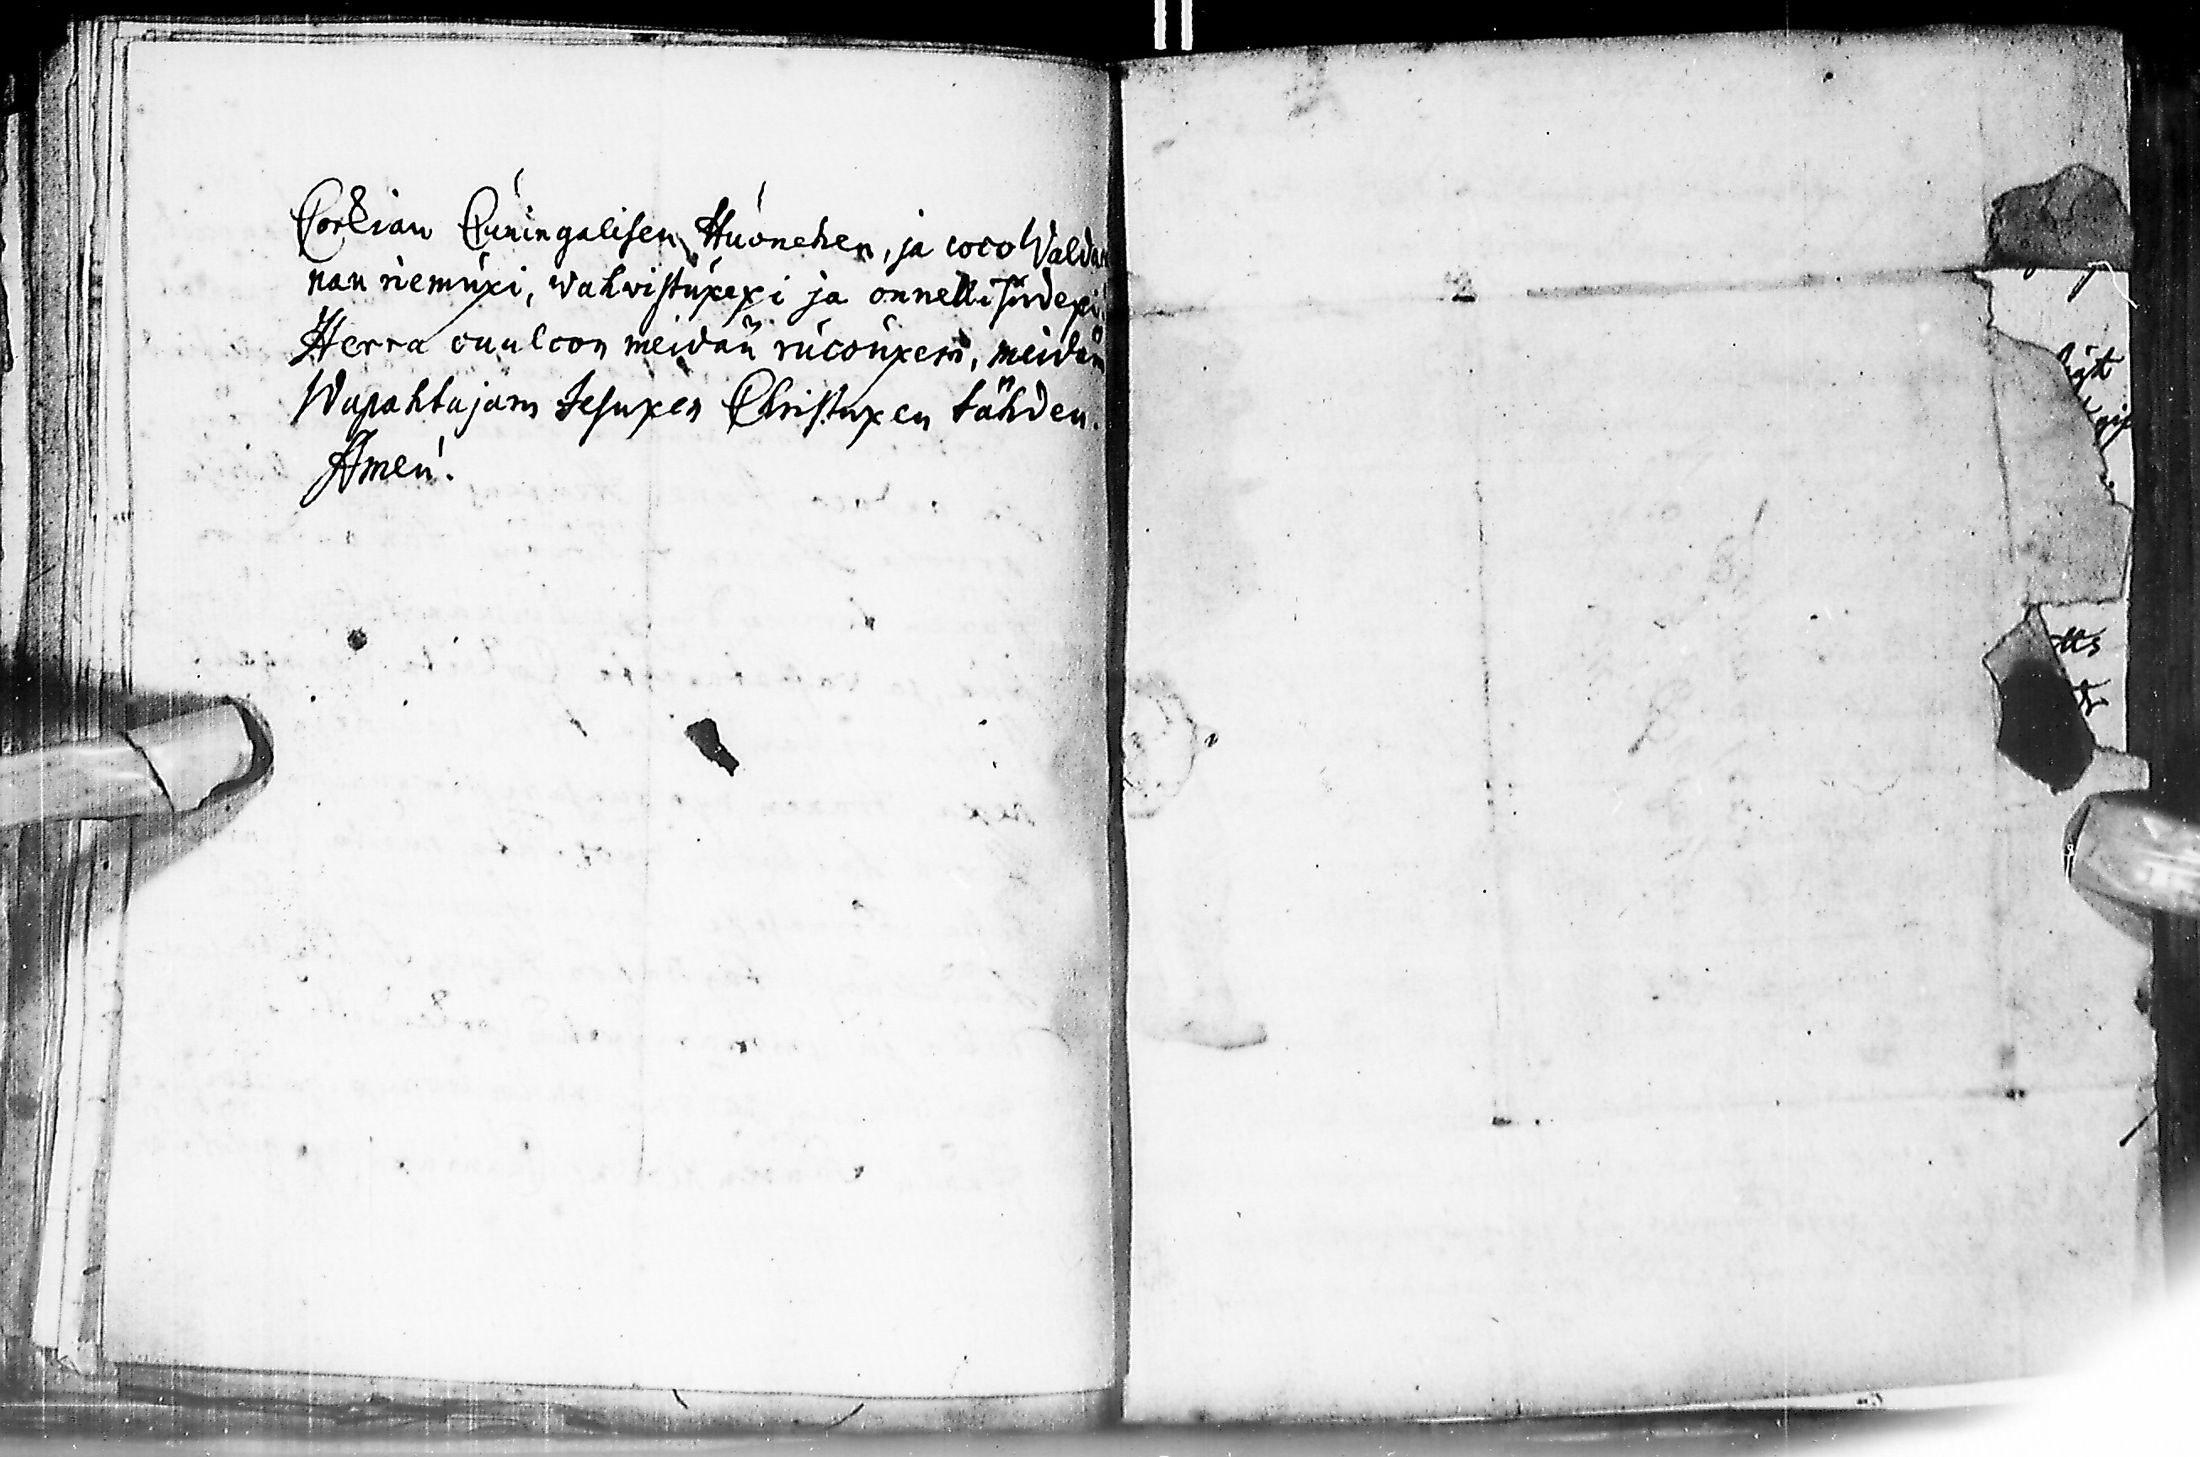 Corkian Cuningalisen Huonehen, ja coco Waldan
nan riemuxi, wahwistuxexi ja onnellisudexi.
Herra cuulcon meidän rucouxem, meidän
Wapahtajam Jesuxen Christuxen tähden.
Amen.